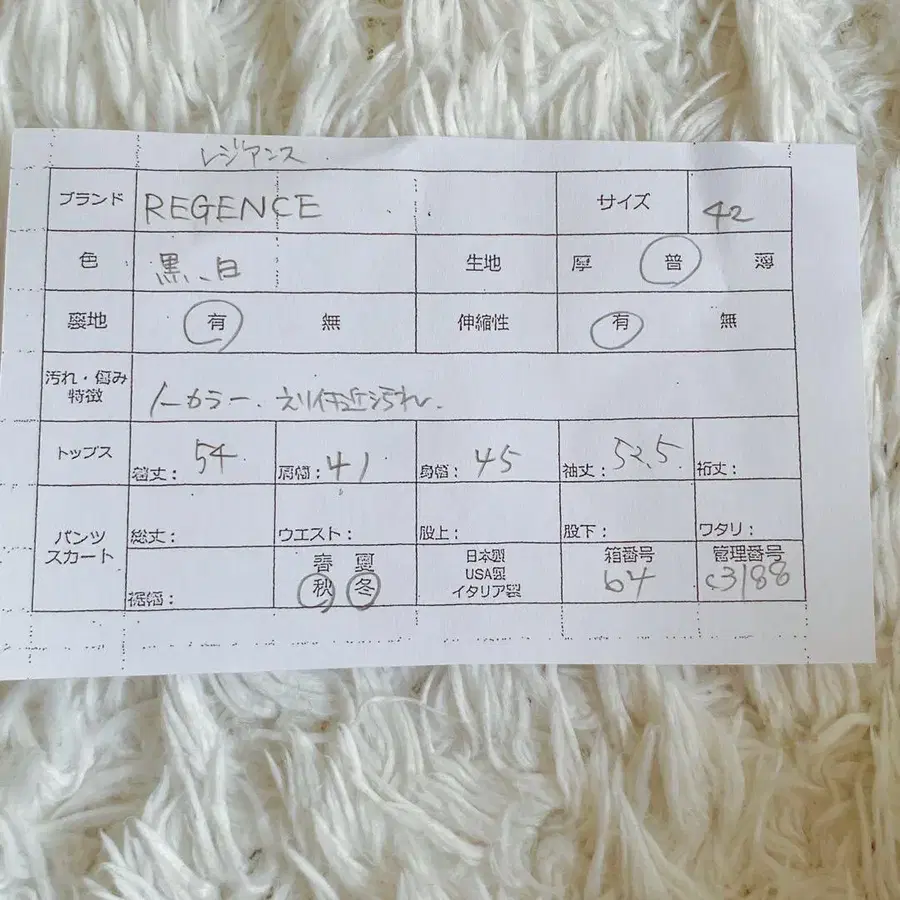 レジアンス
ブランド REGENCE サイズ 42
色 黒、白 生地 厚 普 薄
裏地 有 無 伸縮性 有 無
汚れ・傷み
特徴
ノーカラー、えり付近汚れ、
トップス 着丈: 54 肩幅: 41 身幅: 45 袖丈: 52.5 裄丈:
パンツ
スカート
総丈: ウエスト: 股上: 股下: ワタリ:
裾幅:
春 夏
秋 冬
日本製
USA製
イタリア製
箱番号
64
管理番号
c3188